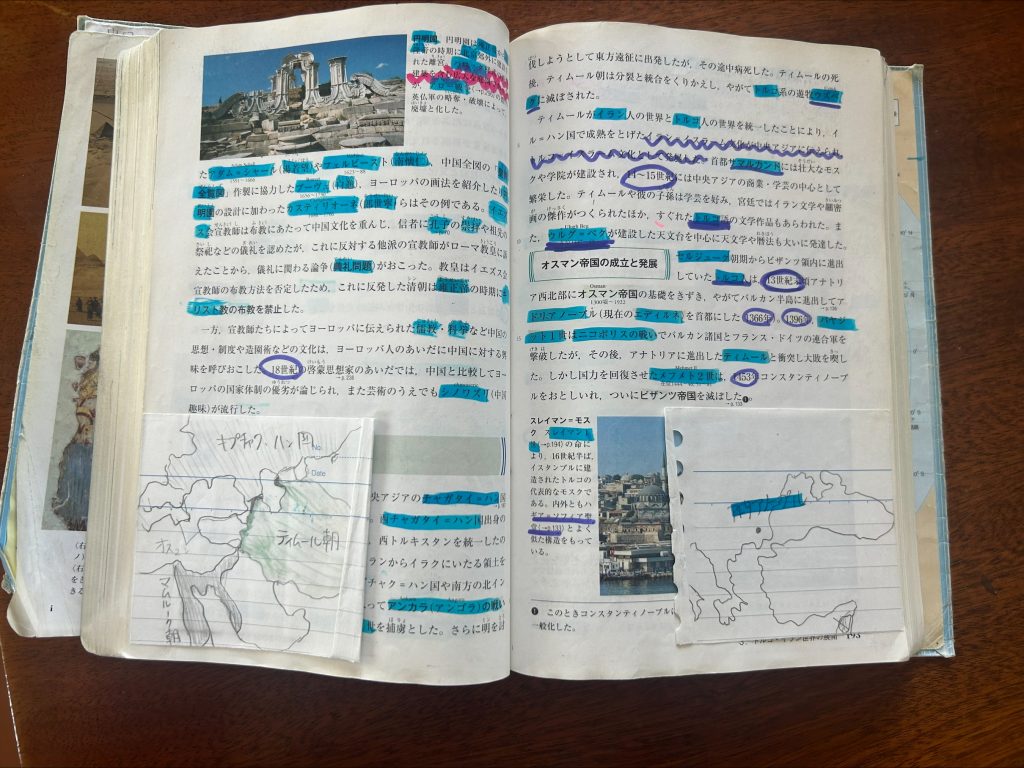 円明園
廃墟と化した。
アダム=シャール(湯若望)やフェルビースト(南懐仁)、中国全図の「皇輿
全覧図」作製に協力したブーヴェ(白進)、ヨーロッパの画法を紹介し円
明園の設計に加わったカスティリオーネ(郎世寧)らはその例である。イエズ
ス会宣教師は布教にあたって中国文化を重んじ、信者に孔子の崇拝や祖先の
祭祀などの儀礼を認めたが、これに反対する他派の宣教師がローマ教皇に訴
えたことから、儀礼に関わる論争(典礼問題)がおこった。教皇はイエズス会
宣教師の布教方法を否定したため、これに反発した清朝は雍正帝の時期にキ
リスト教の布教を禁止した。
一方、宣教師たちによってヨーロッパに伝えられた儒教・科挙など中国の
思想・制度や造園術などの文化は、ヨーロッパ人のあいだに中国に対する興
味を呼びおこした。18世紀の啓蒙思想家のあいだでは、中国と比較してヨー
ロッパの国家体制の優劣が論じられ、また芸術のうえでもシノワズリ(中国
趣味)が流行した。
キプチャク・ハン国
No.
Date
ティムール朝
マムルーク朝
央アジアのチャガタイ=ハン国
西チャガタイ=ハン国出身の
西トルキスタンを統一したの
ランからイラクにいたる領土を
チャク=ハン国や南方の北イン
ってアンカラ(アンゴラ)の戦い
を捕虜とした。さらに明を討
i
伐しようとして東方遠征に出発したが、その途中病死した。ティムールの死
後、ティムール朝は分裂と統合をくりかえし、やがてトルコ系の遊牧ウズベ
クに滅ぼされた。
ティムールがイラン人の世界とトルコ人の世界を統一したことにより、イ
ル=ハン国で成熟をとげたイラン=イスラーム文化が中央アジアに伝えられ、
首都サマルカンドには壮大なモス
クや学院が建設され、14〜15世紀には中央アジアの商業・学芸の中心として
繁栄した。ティムールや彼の子孫は学芸を好み、宮廷ではイラン文学や細密
画の傑作がつくられたほか、すぐれたトルコ語の文学作品もあらわれた。ま
た、ウルグ=ベクが建設した天文台を中心に天文学や暦法も大いに発達した。
オスマン帝国の成立と発展
セルジューク朝期からビザンツ領内に進出
していたトルコ人は、13世紀末頃アナトリ
ア西北部にオスマン帝国の基礎をきずき、やがてバルカン半島に進出してア
ドリアノープル(現在のエディルネ)を首都にした(1366年)。1396年、バヤジ
ット1世はニコポリスの戦いでバルカン諸国とフランス・ドイツの連合軍を
撃破したが、その後、アナトリアに進出したティムールと衝突し大敗を喫し
た。しかし国力を回復させたメフメト2世は、1453年コンスタンティノープ
ルをおとしいれ、ついにビザンツ帝国を滅ぼした❶。
スレイマン=モス
ク スレイマン1
世(→p.194)の命に
より、16世紀半ば、
イスタンブルに建
造されたトルコの
代表的なモスクで
ある。内外ともハ
ギア=ソフィア聖
堂(→p.133)とよく
似た構造をもって
いる。
❶ このときコンスタンティノープルに
一般化した。
3. トルコ・イラン世界の展開 193